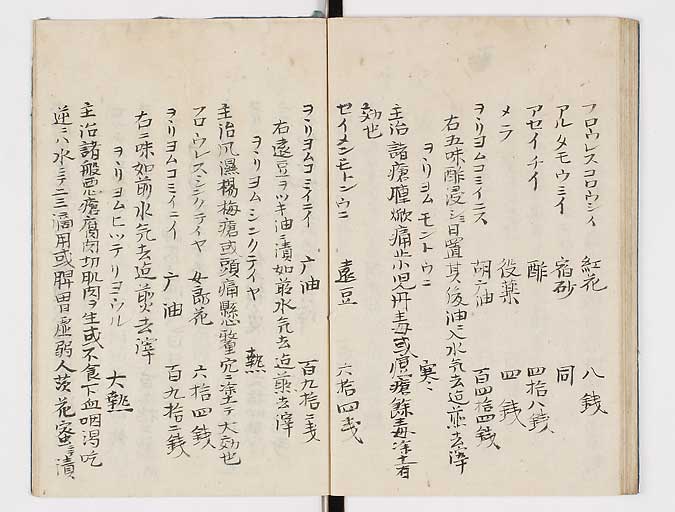 フロウレスコロウシイ 紅花 八銭
アルタモウミイ 宿砂 同
アセイテイ 酢 四拾八銭
メラ 役薬 四銭
ヲヽリヨムコミイニス 胡麻油 百四拾四銭
右五味酢浸シ三日置其後油ニ入水気去迄煎去滓
ヲヽリヨムモントウニ 寒
主治諸瘡腫焮痛止小児丹毒或瘡餘毒塗有
効也
セイメンモトンウニ 遠豆 六拾四戔
ヲヽリヨムコミイニイ 广油 百九拾二戔
右遠豆ヲツキ油ニ漬如前水気去迄煎去滓
ヲヽリヨムシンクテイヤ 熱
主治風濕楊梅瘡或頭痛 塗テ大効也
フロウレスシンクテイヤ 女郎花 六拾四銭
ヲヽリヨムコミイニイ 广油 百九拾二銭
右二味如前水気去迄煎去滓
ヲヽリヨムヒツテリヨウル 大熱
主治諸般悪瘡腐肉切肌肉ヲ生或不食下血咽渇吃
逆ニハ水ニテ二三滴用或脾胃虚弱人茨花蜜ニ漬